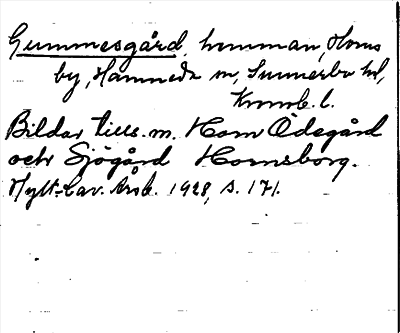 Gummesgård, hemman, Horns
by, Hamneda sn, Sunnerbo hd,
Kronob. l.
Bildar tills. m. Horn Ödegård
och Sjögård Hornsborg.
Hylt-Cav. Årsb. 1928, s. 171.